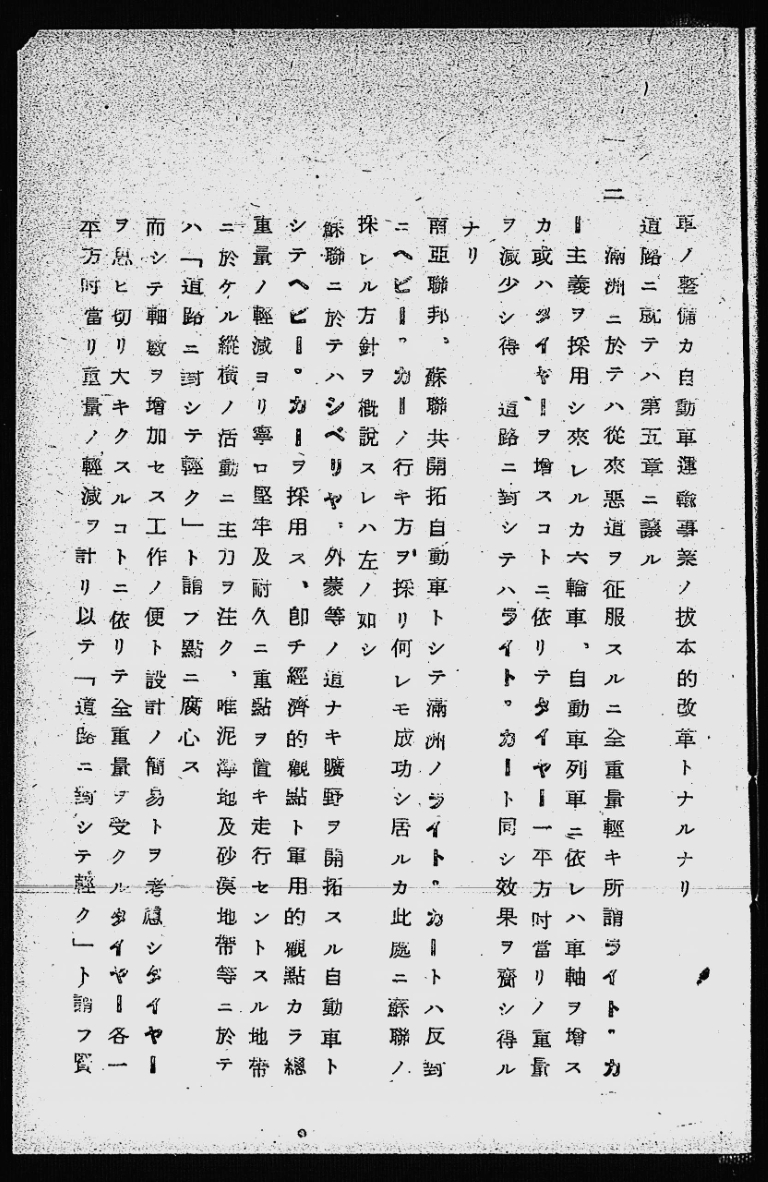 車ノ整備カ自動車運輸事業ノ拔本的改革トナルナリ
道路ニ就テハ第五章ニ讓ル
二　滿洲ニ於テハ從來惡道ヲ征服スルニ全重量輕キ所謂ライト・カ
ー主義ヲ採用シ來レルカ六輪車、自動車列車ニ依レハ車軸ヲ增ス
カ或ハタイヤーヲ增スコトニ依リテタイヤー一平方吋當リノ重量
ヲ減少シ得、道路ニ對シテハライト・カート同シ效果ヲ齎シ得ル
ナリ
南亞聯邦、蘇聯共開拓自動車トシテ滿洲ノライト・カートハ反對
ニヘビー・カーノ行キ方ヲ採リ何レモ成功シ居ルカ此處ニ蘇聯ノ
採レル方針ヲ槪說スレハ左ノ如シ
蘇聯ニ於テハシベリヤ、外蒙等ノ道ナキ曠野ヲ開拓スル自動車ト
シテヘビー・カーヲ採用ス、卽チ經濟的觀點ト軍用的觀點カラ總
重量ノ輕減ヨリ寧ロ堅牢及耐久ニ重點ヲ置キ走行セントスル地帶
ニ於ケル縱橫ノ活動ニ主力ヲ注ク、唯泥濘地及砂漠地帶等ニ於テ
ハ「道路ニ對シテ輕ク」ト謂フ點ニ腐心ス
而シテ軸數ヲ增加セス工作ノ便ト設計ノ簡易トヲ考慮シタイヤー
ヲ思ヒ切リ大キクスルコトニ依リテ全重量ヲ受クルタイヤー各一
平方吋當リ重量ノ輕減ヲ計リ以テ「道路ニ對シテ輕ク」ト謂フ質